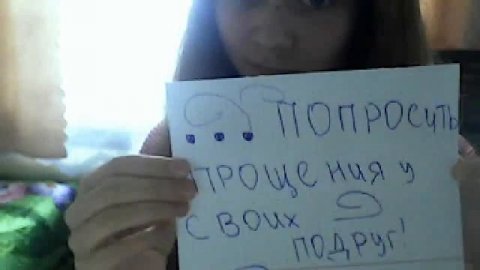 ... ПОПРОСИТЬ
ПРОЩЕНИЯ У
СВОИХ
ПОДРУГ!